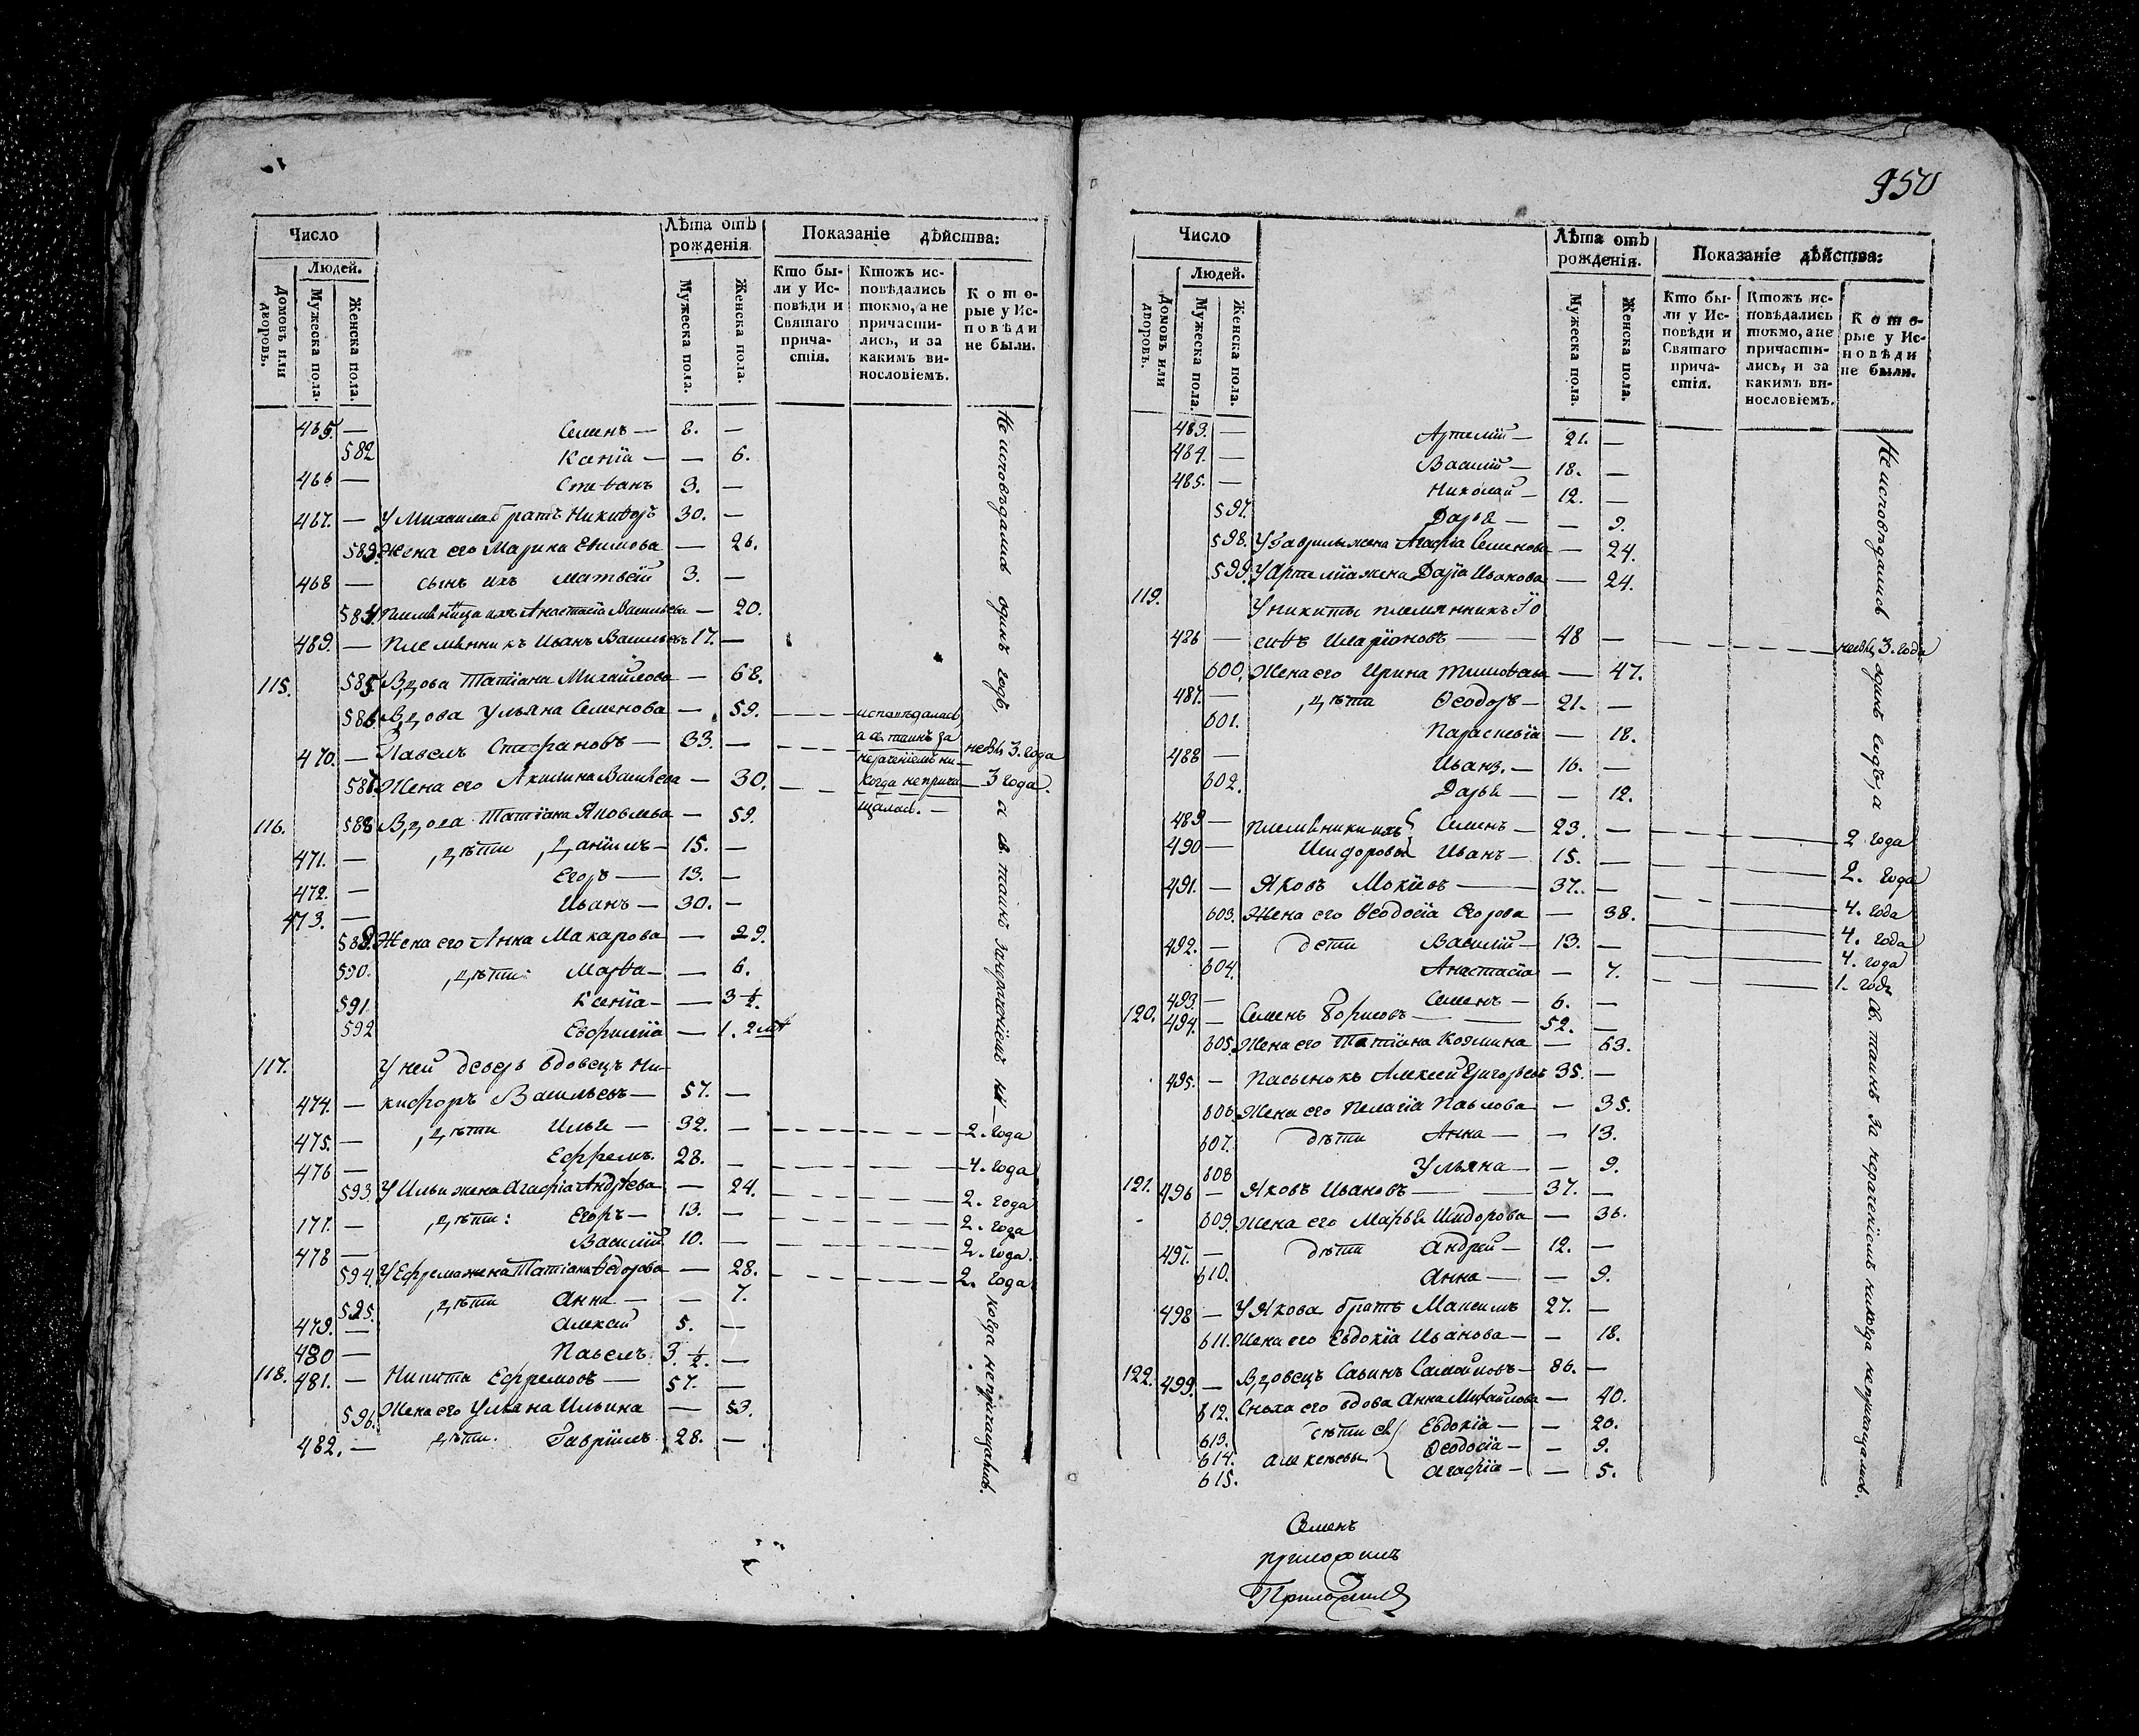 Число
Людей.
Домовъ или дворовъ.
Мужеска пола.
Женска пола.
Лѣта отъ рожденія.
Мужеска пола.
Женска пола.
Показаніе дѣйства:
Кто бы-
ли у Ис-
повѣди и
Святаго
прича-
стія.
Ктожъ ис-
повѣдались
токмо, а не
причасти-
лись, и за
какимъ ви-
нословіемъ.
Кото-
рые у Ис-
повѣди
не были.
465. — Семенъ — 8. —
582 Ксенїа — — 6.
466 — Стеѳанъ 3. —
467. — У Михаила братъ Никиѳоръ 30. —
583. Жена его Марина Евѳимова — 26.
468 — сынъ ихъ Матвей 3. —
584. Племѣница ихъ Анастасїа Васильева — 20.
469. — Племѣнникъ Иванъ Васильевъ 17. —
115. 585. Вдова Татїана Михайлова — 68.
586. Вдова Ульяна Семенова — 59. — — — исповѣдалась
а св. таинъ за
нераченїемъ ни-
когда неприча-
щалась. —
470. — Павелъ Стефановъ — 33. — — — — небы 3. года
587. Жена его Акилина Васильева — 30. — — — 3 года.
116. 588 Вдова Татїана Яковлева — 59.
471. — дѣти Данїилъ — 15. —
472. — Егоръ — 13. —
473. — Иванъ — 30. —
589. Жена его Анна Макарова — 29.
590. дѣти: Марѳа — — 6.
591. Ксенїа — — 3 ½.
592 Евфимїа — 1. 2
117. У ней деверь вдовецъ Ни-
474. — кифоръ Васильевъ — 57. —
475. — дѣти Илья — 32. — — — — 2. года
476 — Ефремъ. 28. — — — — 4. года
593. У Ильи жена Агафїа Андрѣева — 24. — — — 2. года
177. — дѣти: Егоръ — 13. — — — — 2. года
478 — Василїй 10. — — — — 2. года.
594. У Ефрема жена Татїана Ѳедорова — 28. — — — 2. года
595. дѣти Анна — — 7.
479. — Алексїй 5. —
480 — Павелъ. 3. ½. —
118. 481. — Никита Ефремовъ — 57. —
596. Жена его Ульяна Ильина — 53.
482. — дѣти. Гаврїилъ 28. —
Не исповѣдались одинъ годъ, а св. таинъ занераченїемъ ни когда непричащались.
950
Число
Людей.
Домовъ или дворовъ.
Мужеска пола.
Женска пола.
Лѣта отъ рожденія.
Мужеска пола.
Женска пола.
Показаніе дѣйства:
Кто бы-
ли у Ис-
повѣди и
Святаго
прича-
стія.
Ктожъ ис-
повѣдались
токмо, а не
причасти-
лись, и за
какимъ ви-
нословіемъ.
Кото-
рые у Ис-
повѣди
не были.
483. — Артемїй — 21. —
484. — Василїй — 18. —
485. — Николай — 12. —
597. Дарья — — 9.
598. У Гаврилы жена Агафїа Семенова — 24.
599. У Артемїя жена Дарїа Иванова — 24.
119. У никиты племянникъ Їо
426 — сифъ Иларїоновъ — 48 — — — — небы 3. года
600. Жена его Ирина Тимоѳеева — 47.
487. — дѣти Ѳеодоръ — 21. —
601. Параскевїа — 18.
488 — Иванъ. — 16. —
602. Дарья — — 12.
489 — племѣники ихъ Семенъ — 23. — — — — 2 года
490 — Исидоровы Иванъ — 15. — — — — 2. года
491. — Яковъ Мокїевъ — 37. — — — — 4. года
603. Жена его Ѳеодосїа Егорова — 38. — — — 4. года
492. — дети Василїй — 13. — — — — 4. года
604. Анастасїа — 7. — — — 1. годъ
493 — Семенъ — 6. —
120. 494. — Семенъ Борисовъ — 52. —
605. Жена его Татїана Козмина — 63.
495. — Пасынокъ Алексей Григорьевъ 35. —
606. Жена его Пелагїа Павлова — 35.
607. дѣти Анна — — 13.
608 Ульяна — — 9.
121. 496 — Яковъ Ивановъ — 37. —
609. Жена его Марья Исидорова — 36.
497. — дѣти Андрей — 12. —
610. Анна — — 9.
498 — У Якова братъ Максимъ 27. —
611. Жена его Евдокїа Иванова — — 18.
122. 499. — Вдовецъ Савинъ Самойловъ — 86. —
612. Сноха его вдова Анна Михайлова — 40.
613. дѣти ея Евдокїа — — 20.
614. алексѣевы Ѳеодосїа — — 9.
615. Агафїа — — 5.
Не исповѣдались одинъ годъ, а св. таинъ за нераченїемъ никогда непричащались.
Семенъ
приложилъ